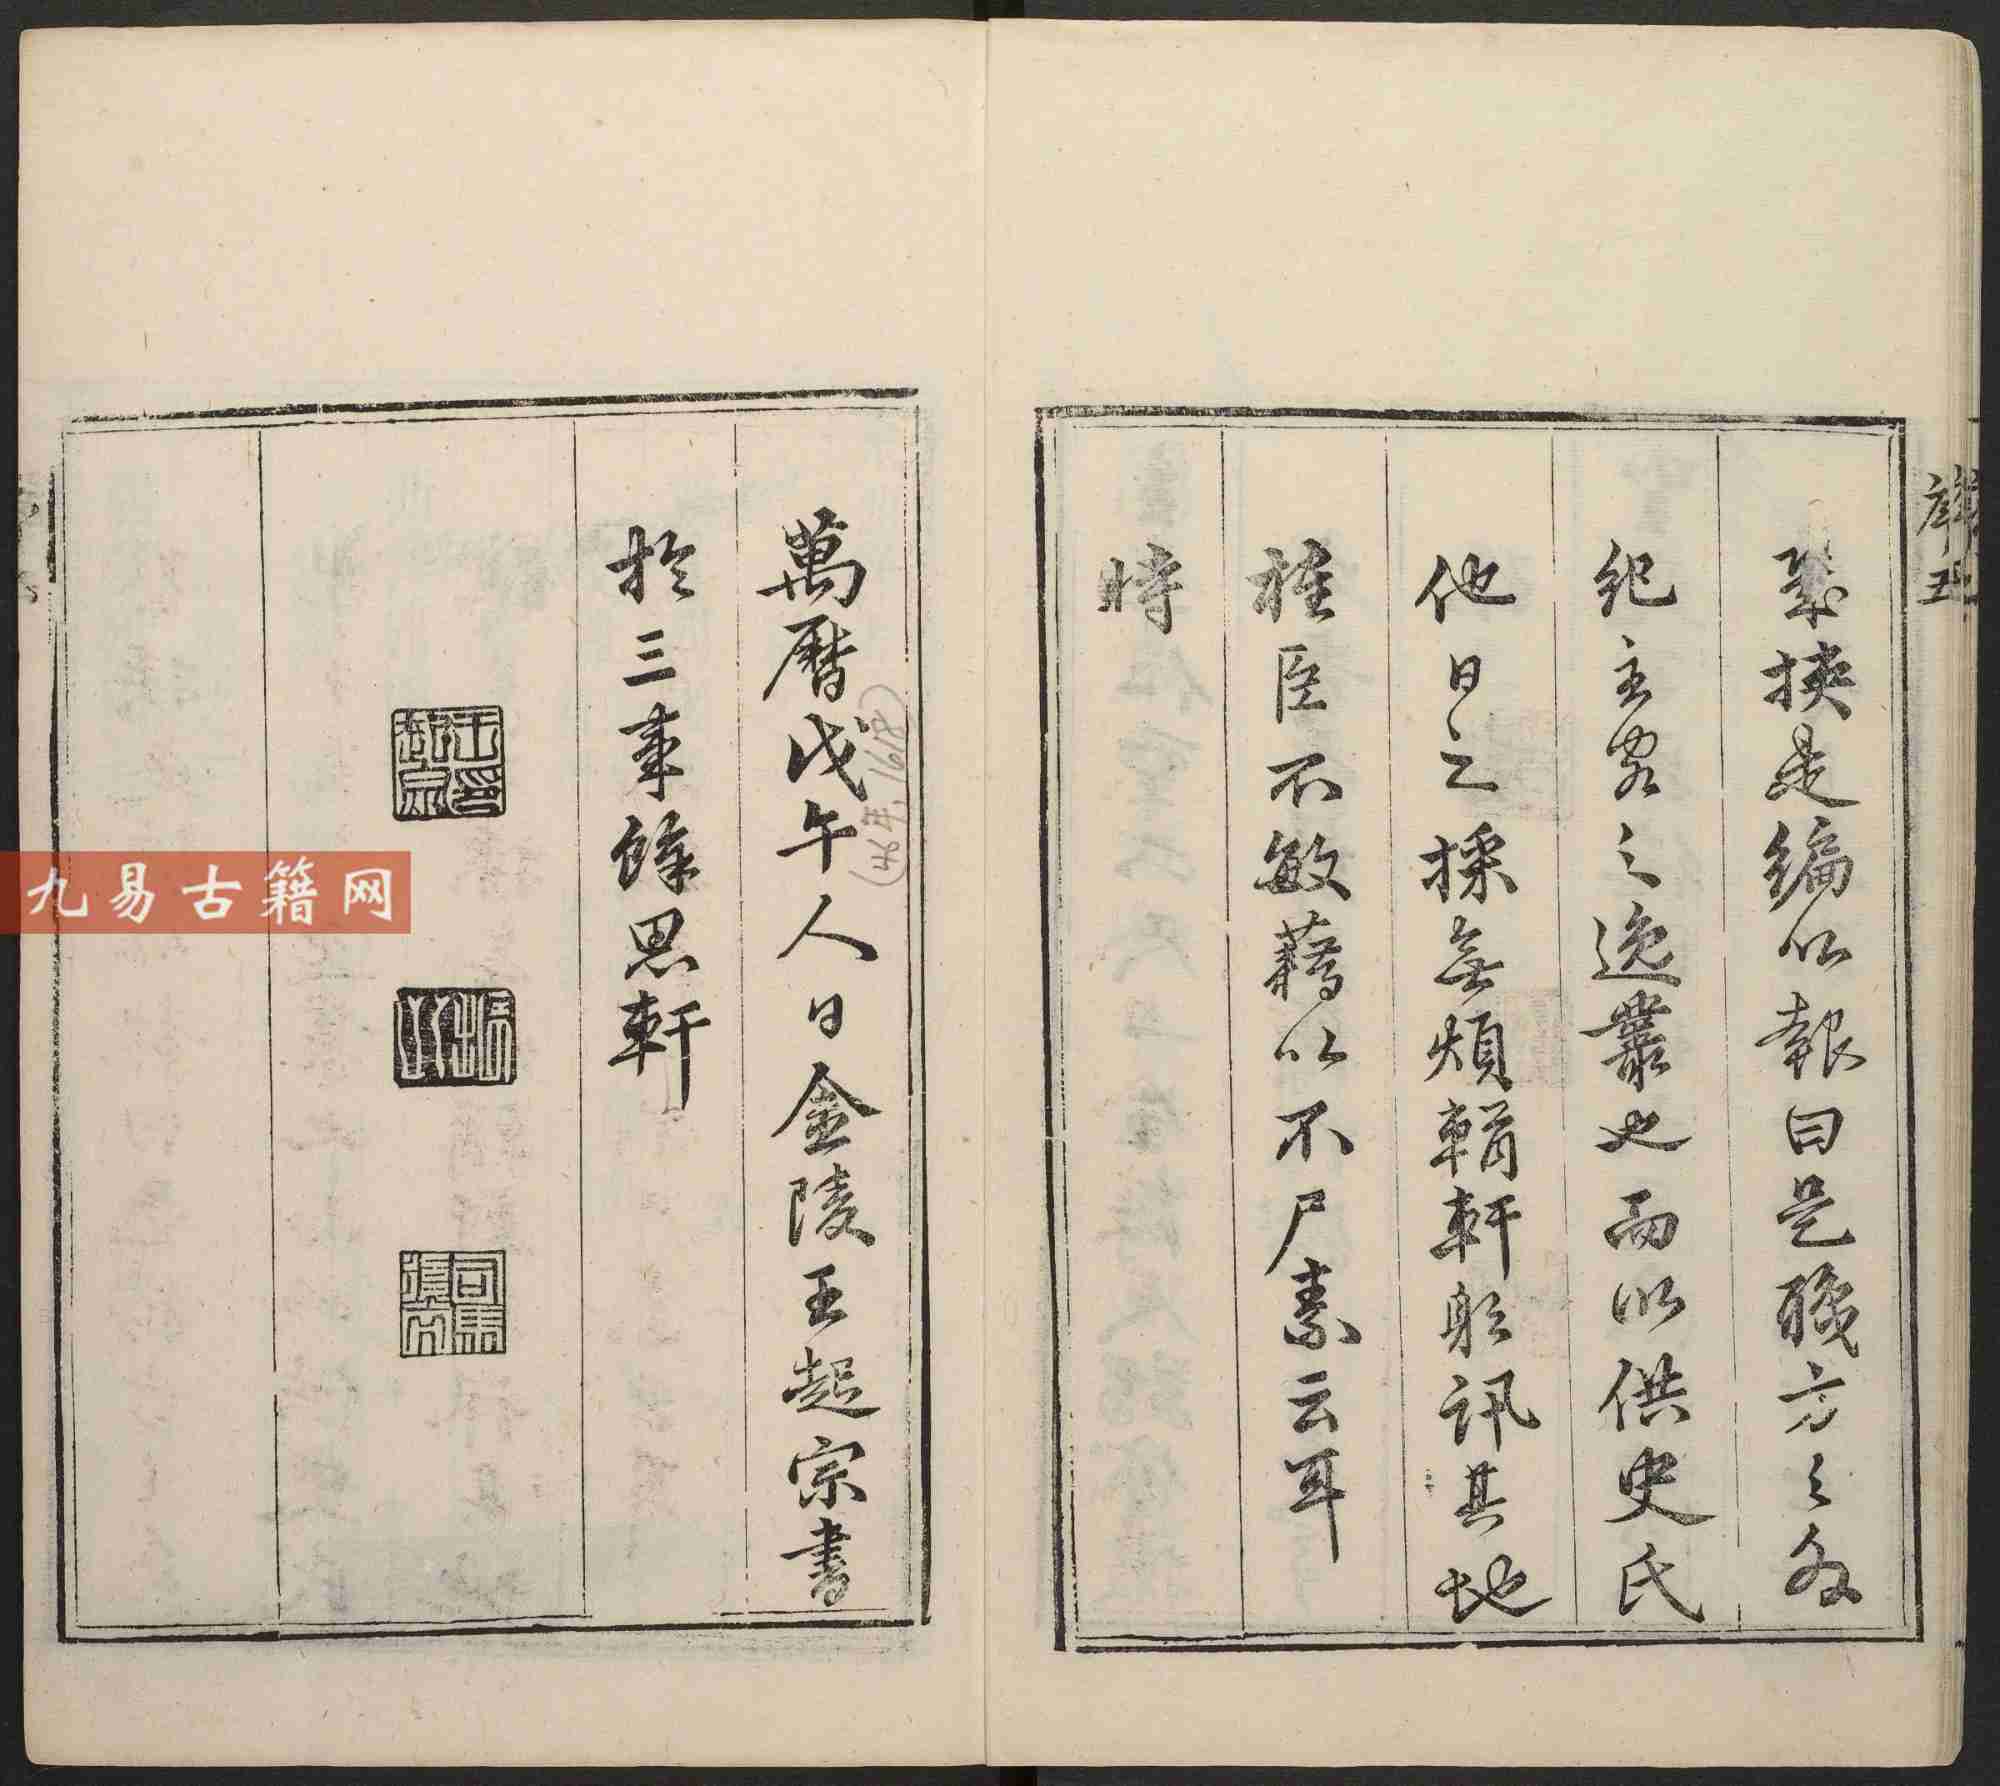 五
挾是編以報曰是職方之外
紀主客之逸叢也而以供史氏
他日之採無煩輶軒躬訊其地
臣不敏藉以不尸素云耳
時
萬曆戊午人日金陵王起宗書
(46年,1618)
於三事餘思軒
王起宗印
九易古籍网